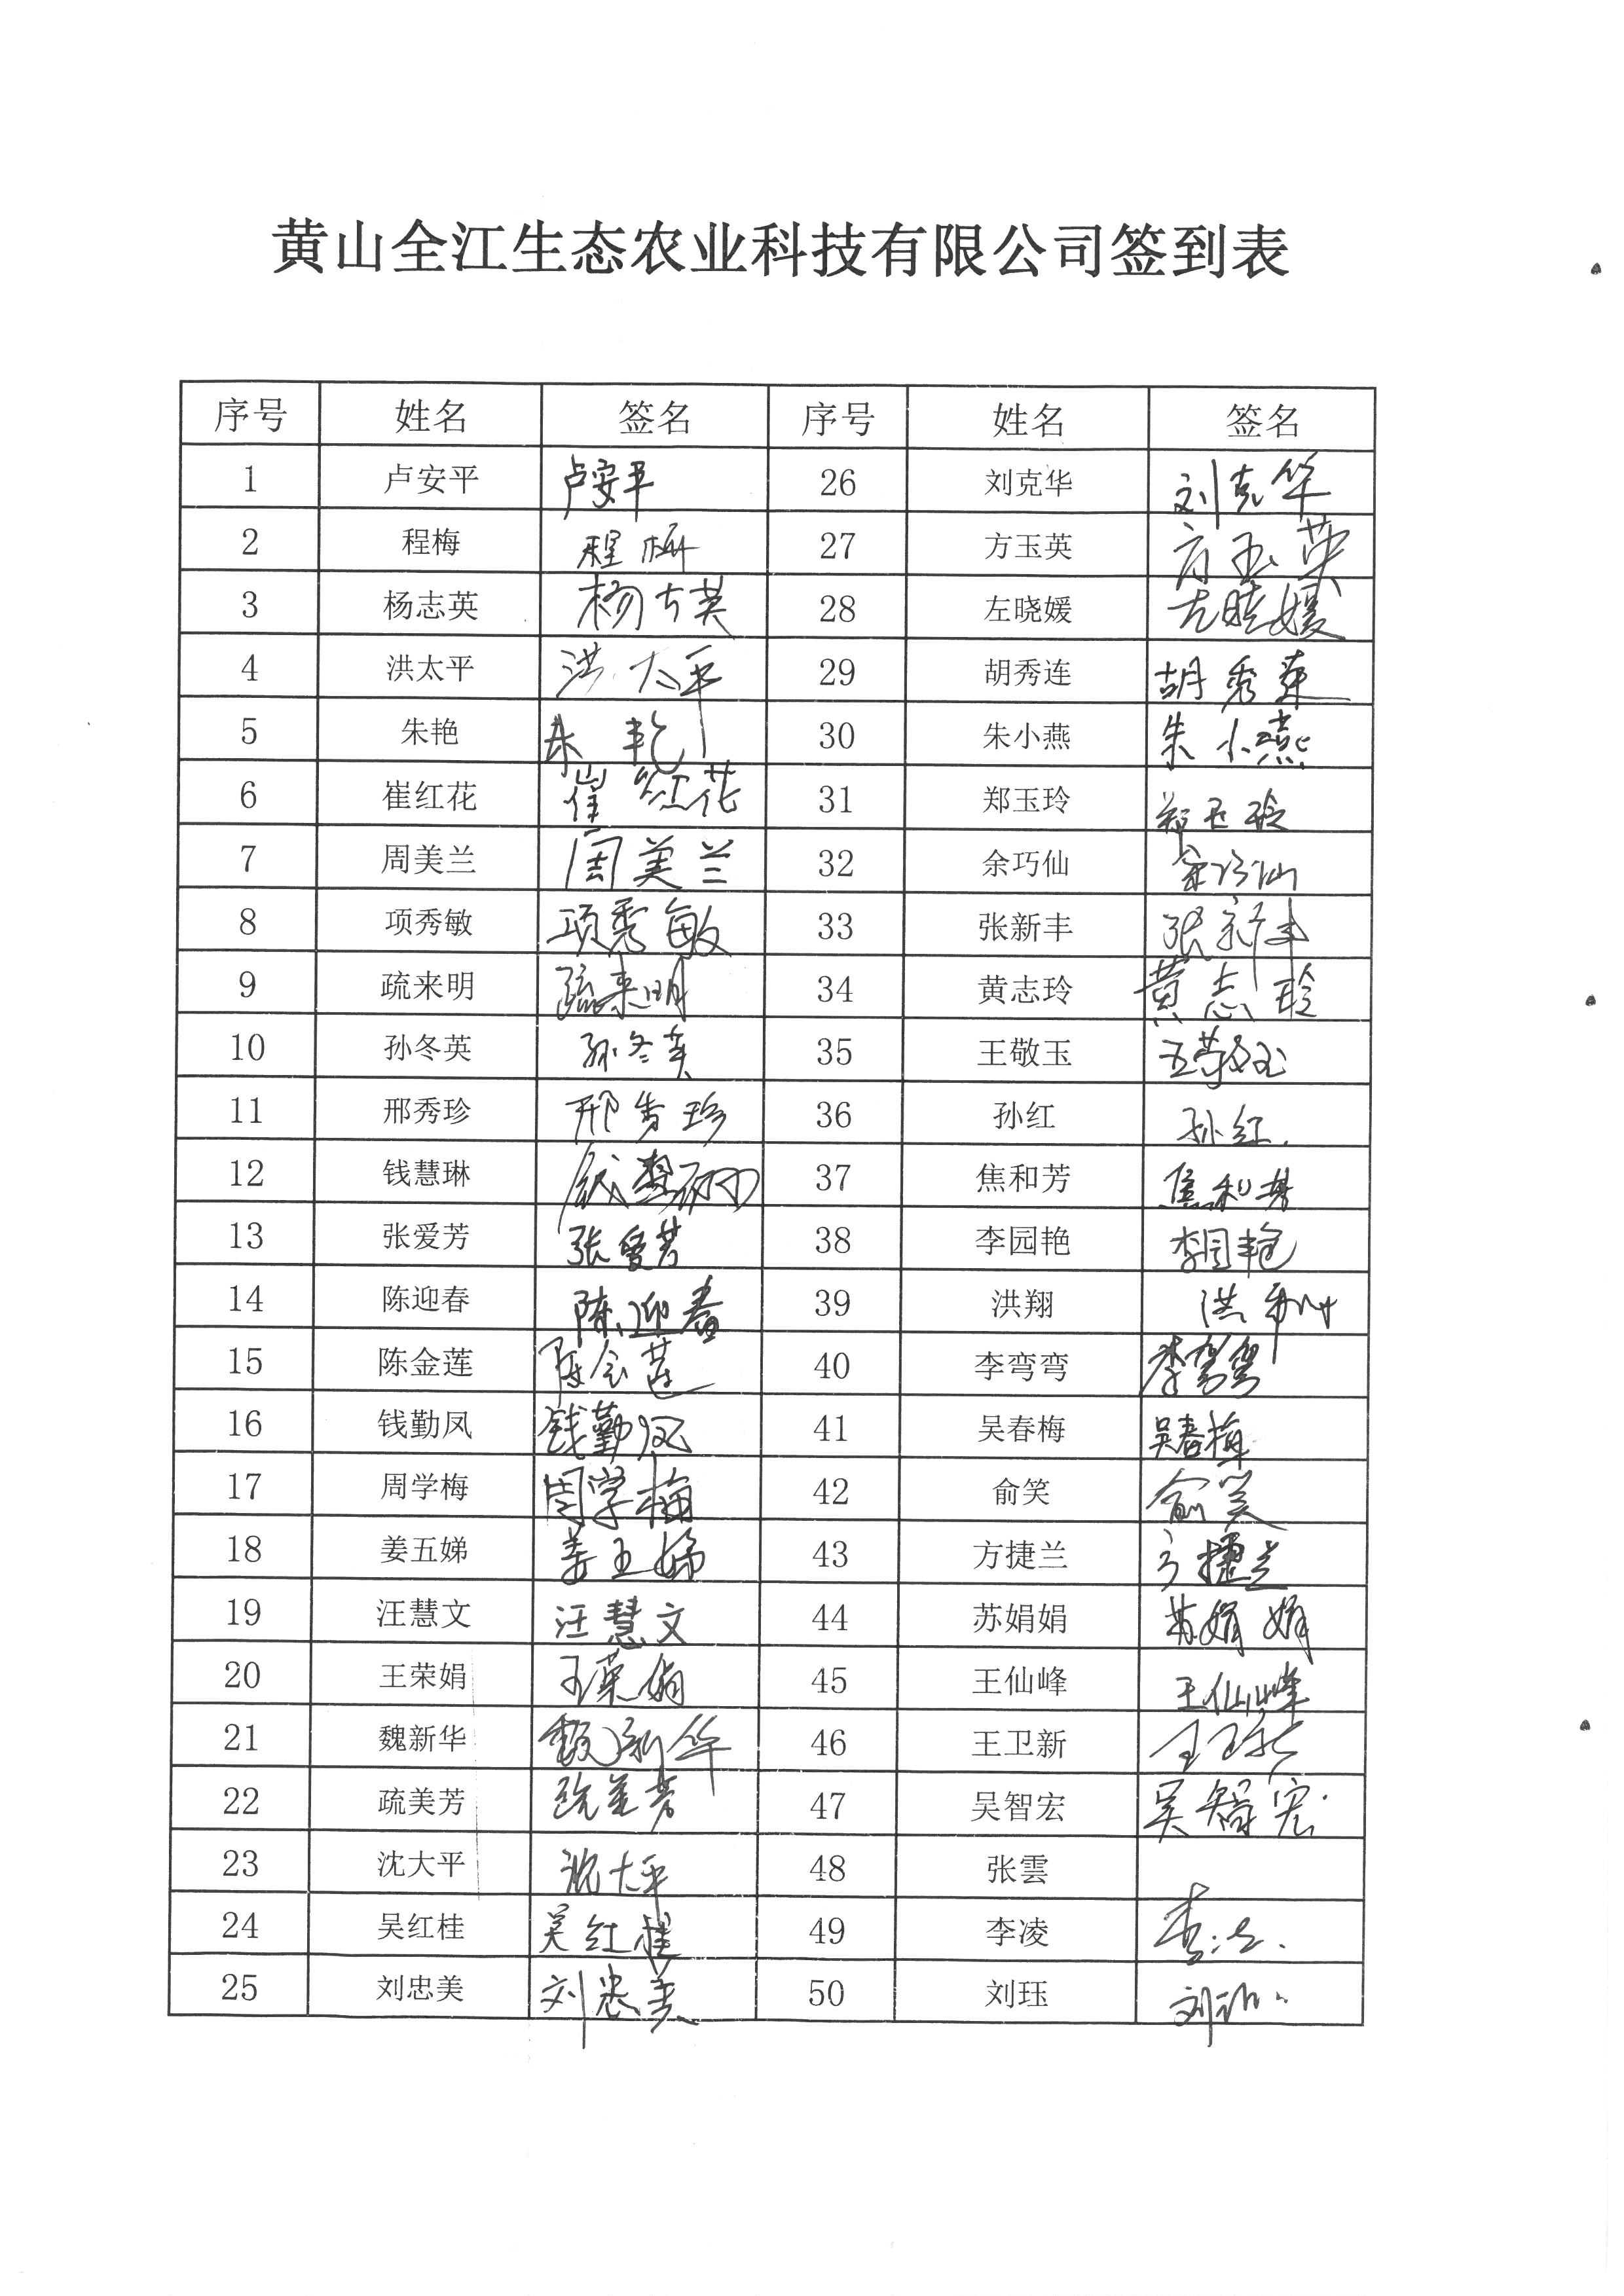 黄山全江生态农业科技有限公司签到表
序号 姓名 签名 序号 姓名 签名
1 卢安平 卢安平 26 刘克华 刘克华
2 程梅 程梅 27 方玉英 方玉英
3 杨志英 杨士英 28 左晓媛 左晓媛
4 洪太平 洪太平 29 胡秀连 胡秀莲
5 朱艳 朱艳 30 朱小燕 朱小燕
6 崔红花 崔红花 31 郑玉玲 郑玉玲
7 周美兰 周美兰 32 余巧仙 余巧仙
8 项秀敏 项秀敏 33 张新丰 张新丰
9 疏来明 疏来明 34 黄志玲 黄志玲
10 孙冬英 孙冬英 35 王敬玉 王敬玉
11 邢秀珍 邢秀珍 36 孙红 孙红
12 钱慧琳 钱慧琳 37 焦和芳 焦和芳
13 张爱芳 张爱芳 38 李园艳 李园艳
14 陈迎春 陈迎春 39 洪翔 洪翔
15 陈金莲 陈金莲 40 李弯弯 李弯弯
16 钱勤凤 钱勤凤 41 吴春梅 吴春梅
17 周学梅 周学梅 42 俞笑 俞笑
18 姜五娣 姜五娣 43 方捷兰 方捷兰
19 汪慧文 汪慧文 44 苏娟娟 苏娟娟
20 王荣娟 王荣娟 45 王仙峰 王仙峰
21 魏新华 魏新华 46 王卫新 王卫新
22 疏美芳 疏美芳 47 吴智宏 吴智宏
23 沈大平 沈大平 48 张雲
24 吴红桂 吴红桂 49 李凌 李凌
25 刘忠美 刘忠美 50 刘珏 刘珏